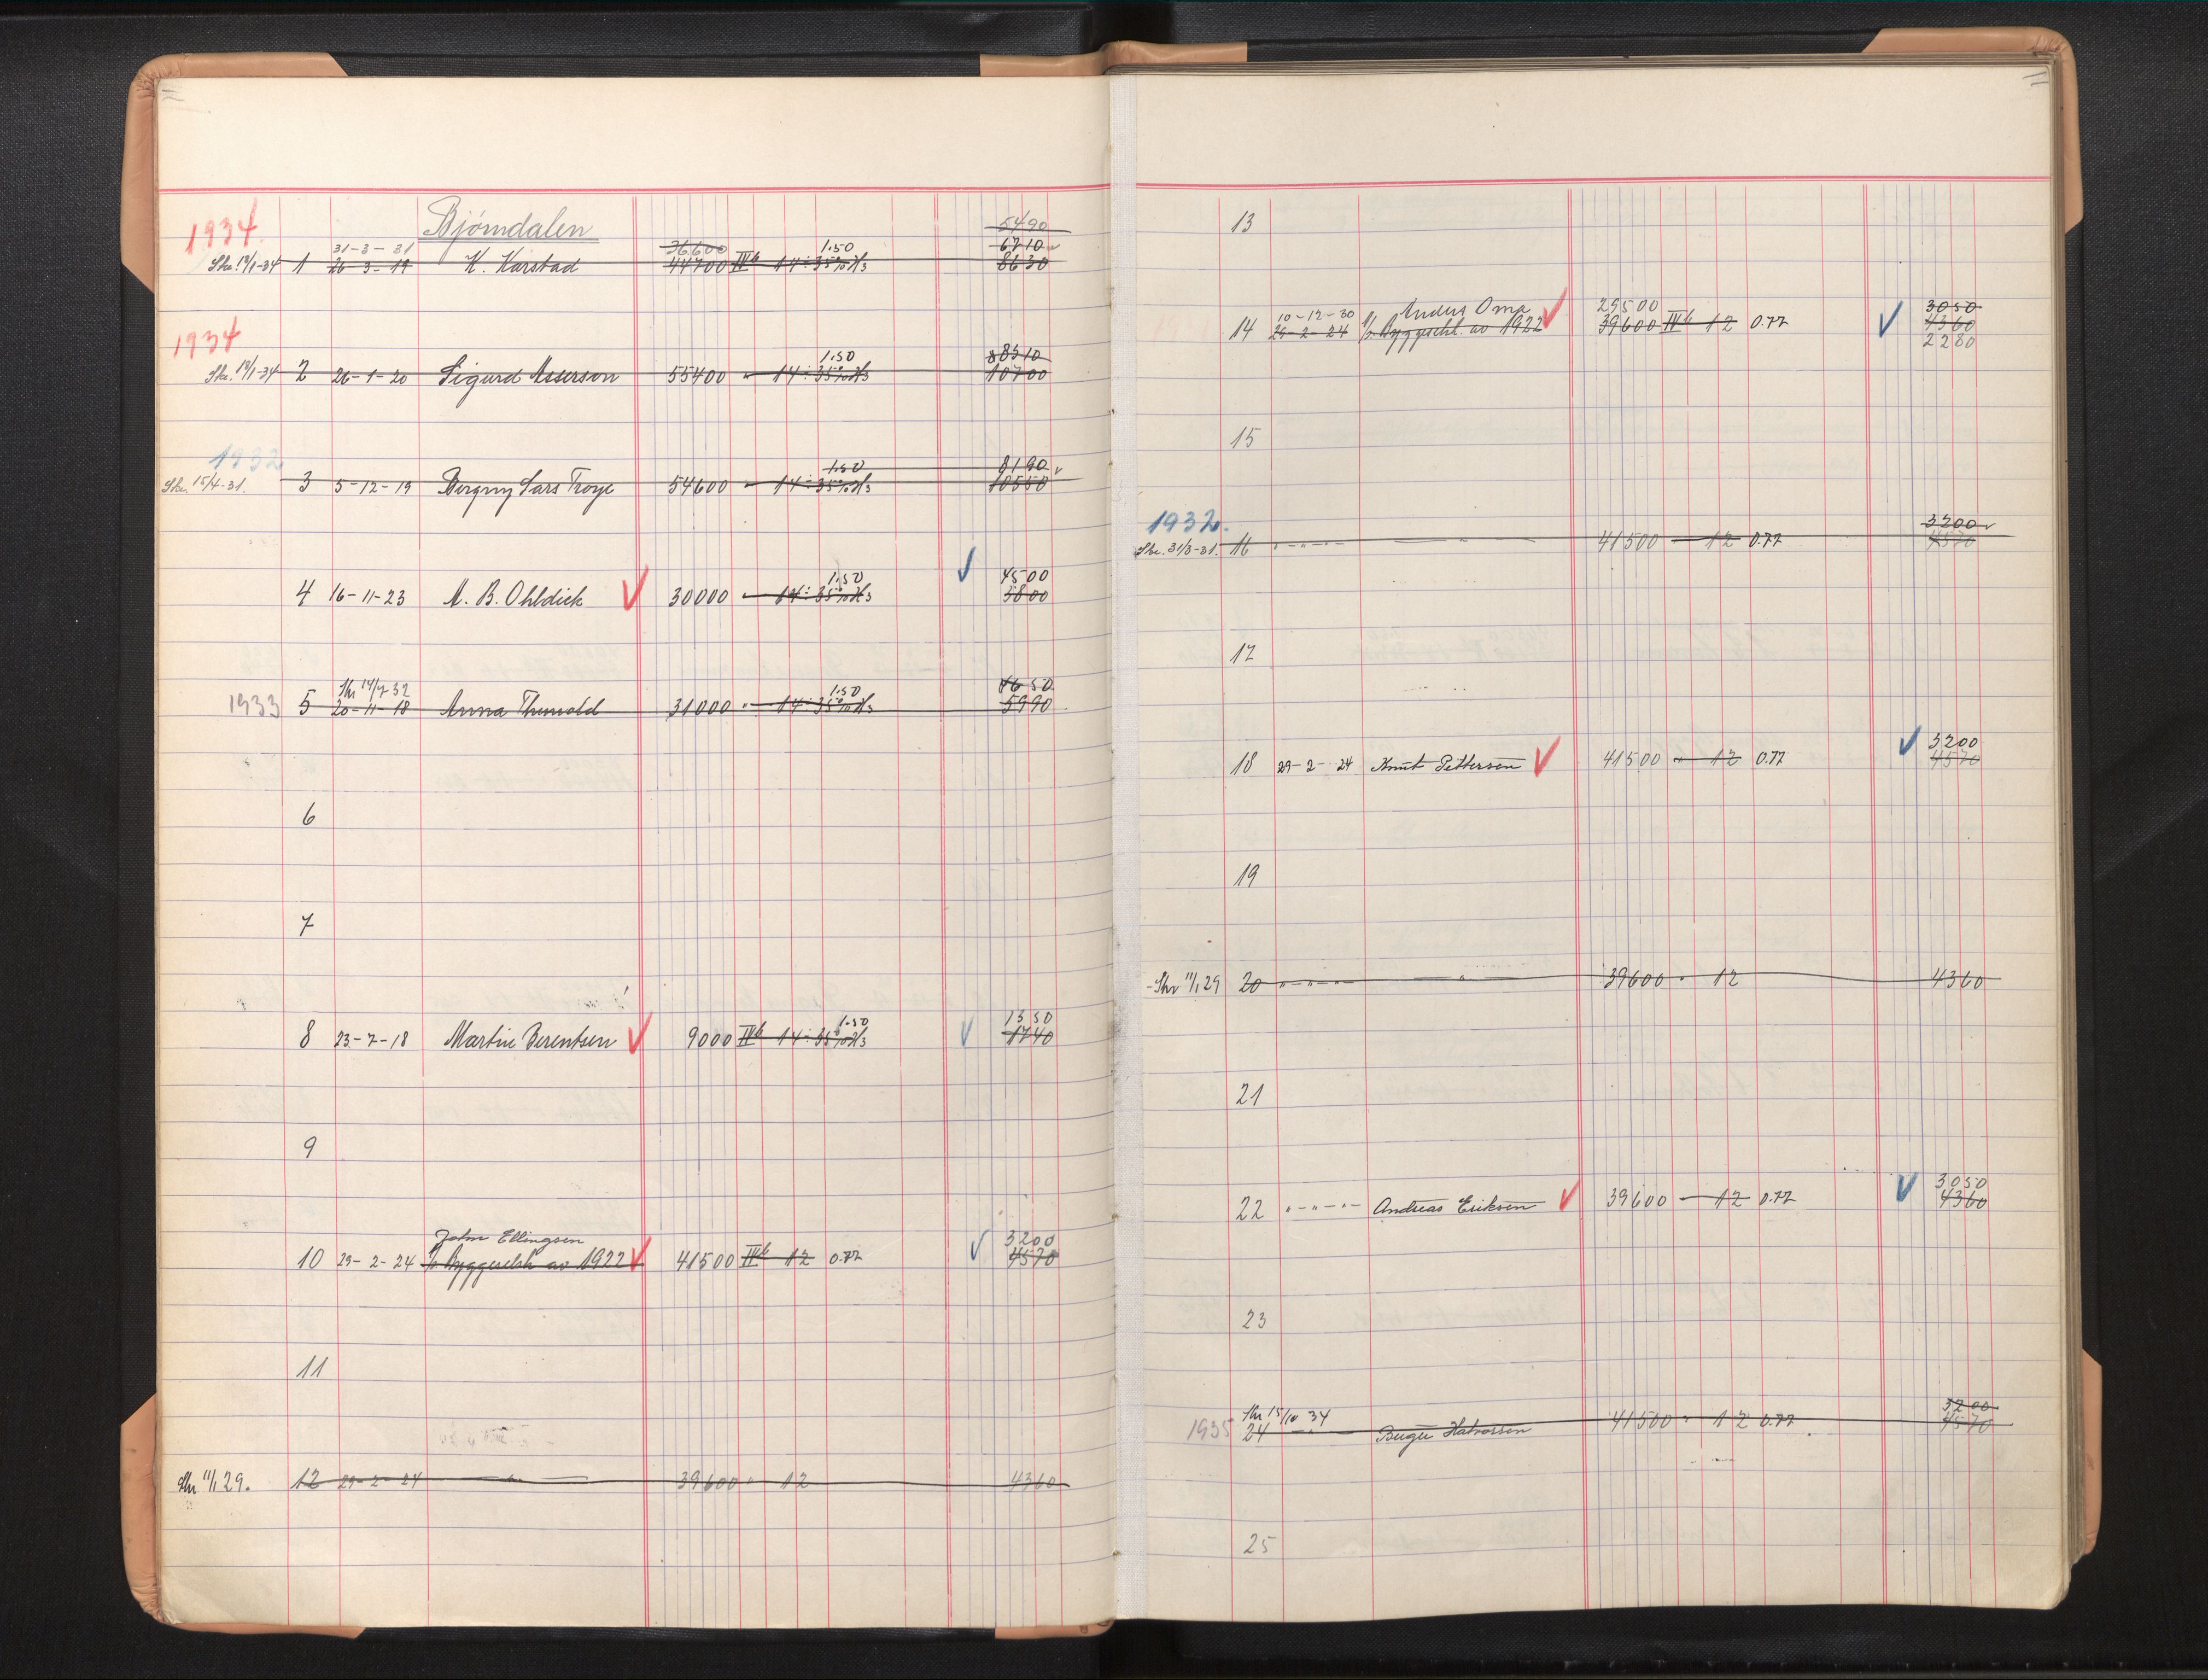 Bjørndalen
1934.
5490
31-3-31 36.600 1.50 6710
Skr. 19/1-34 1 26-3-19 K. Karstad 44700 IVb 14÷35%xH3 8630
1934
1.50 8310
Skr. 19/1-34 2 26-1-20 Sigurd Asserson 55400 " 14÷35%xH3 10700
1932
1.50 8190
Skr. 15/4-31. 3 5-12-19 Sars Troye 54600 " 14÷35%xH3 10550
1.50 4500
4 16-11-23 M. B. Ohldick 30000 " 14÷35%xH3 5800
Skr 14/7 32 1.50 4650
1933 5 20-11-18 Anna 31000 " 14÷35%xH3 5990
6
7
1.50 1350
8 23-7-18 Martin Berentsen 9000 IVb 14÷35%xH3 1740
9
John Ellingsen 3200
10 29-2-24 Byggeselsk av 1922 41500 IVb 12 0.77 4570
11
Skr 11/1 29. 12 29-2-24 " 39600 " 12 4360
13
10-12-30 Anders Oma 29500 3050
14 29-2-24 Byggeselsk. av 1922 39600 IVb 12 0.77 4360
2280
15
1932.
3200
Skr. 31/3-31. 16 "-"-"- " 41500 - 12 0.77 4570
17
3200
18 29-2-24 Knut Pettersen 41500 " 12 0.77 4570
19
Skr 11/1 29 20 "-"-"- " 39600 " 12 4360
21
3050
22 "-"-"- Andreas Eriksen 39600 - 12 0.77 4360
23
Skr 15/10 34 3200
1935 24 - " 41500 " 12 0.77 4570
25